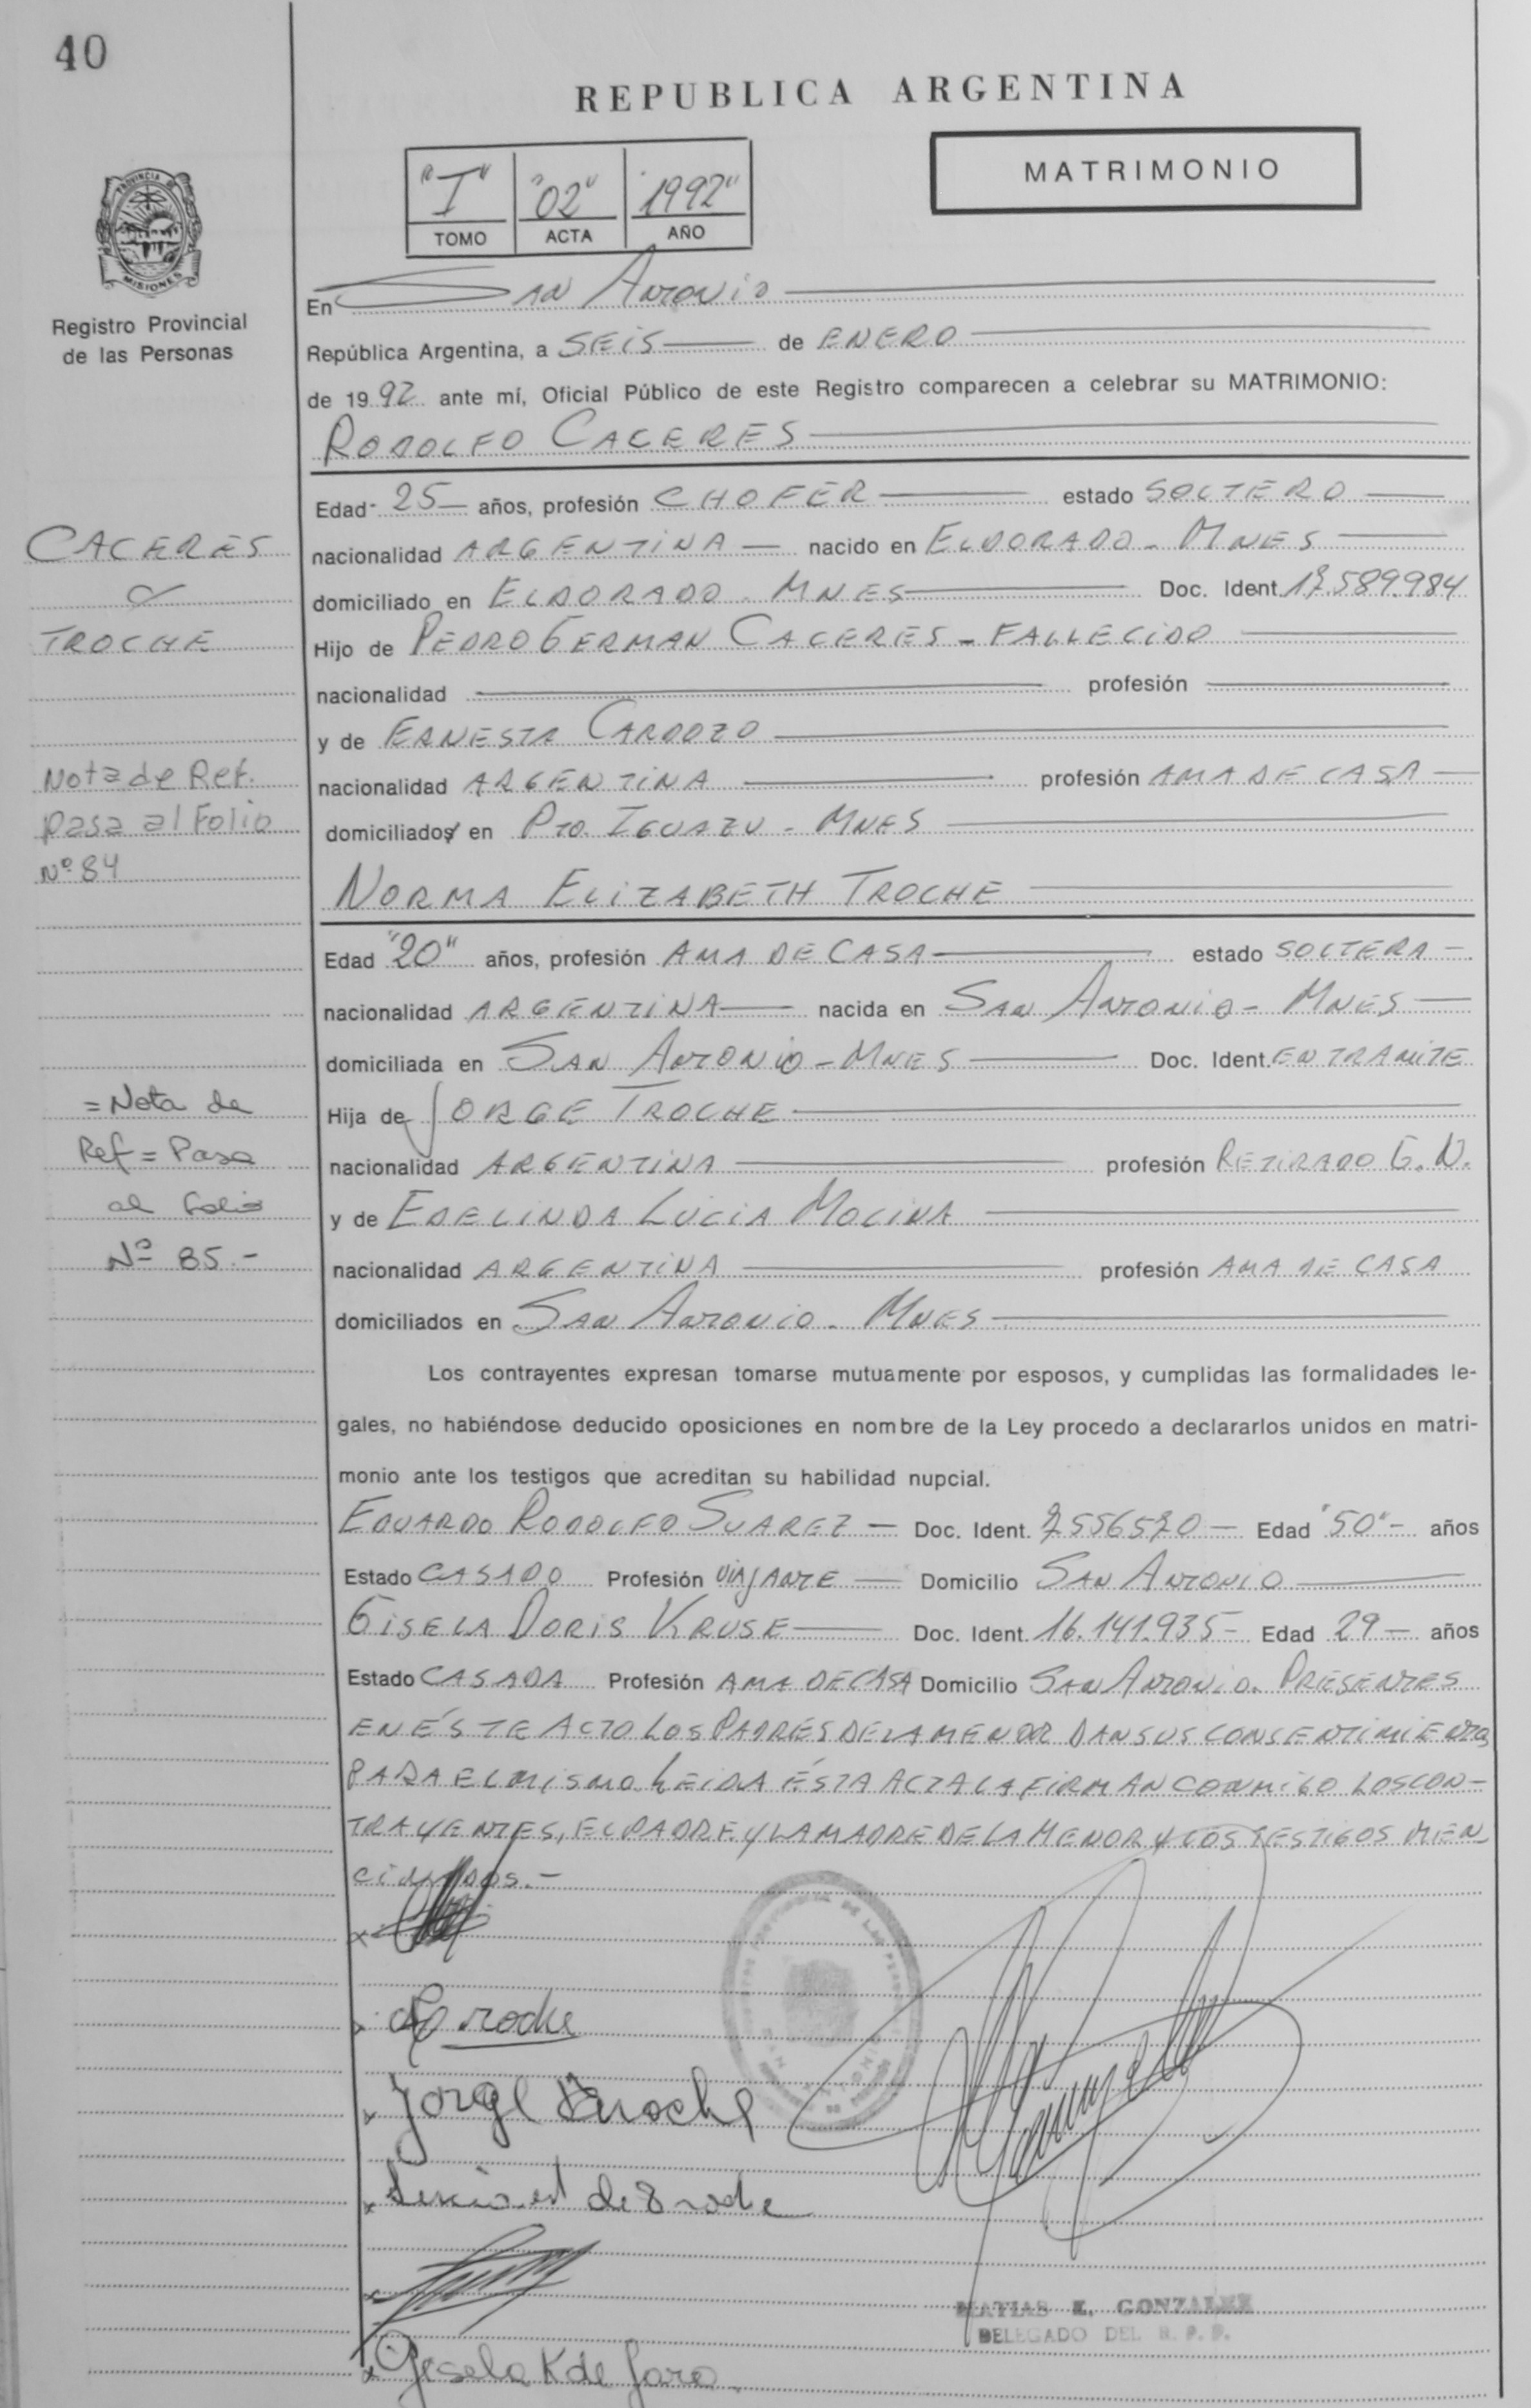 40
REPUBLICA ARGENTINA
"I" "02" 1992"
TOMO ACTA AÑO
MATRIMONIO
PROVINCIA DE
MISIONES
Registro Provincial
de las Personas
En SAN ANTONIO
República Argentina, a SEIS de ENERO
de 1992 ante mí, Oficial Público de este Registro comparecen a celebrar su MATRIMONIO:
RODOLFO CACERES
Edad 25 años, profesión CHOFER estado SOLTERO
nacionalidad ARGENTINA nacido en ELDORADO - MNES
domiciliado en ELDORADO - MNES Doc. Ident. 17.589.984
Hijo de PEDRO GERMAN CACERES - FALLECIDO
nacionalidad profesión
y de ERNESTA CARDOZO
nacionalidad ARGENTINA profesión AMA DE CASA
domiciliados en PTO. IGUAZU - MNES
NORMA ELIZABETH TROCHE
Edad "20" años, profesión AMA DE CASA estado SOLTERA
nacionalidad ARGENTINA nacida en SAN ANTONIO - MNES
domiciliada en SAN ANTONIO - MNES Doc. Ident. EN TRAMITE
Hija de JORGE TROCHE
nacionalidad ARGENTINA profesión RETIRADO G.N.
y de EDELINDA LUCIA MOLINA
nacionalidad ARGENTINA profesión AMA DE CASA
domiciliados en SAN ANTONIO - MNES
CACERES
TROCHE
Nota de Ref.
pasa al Folio
Nº 84
= Nota de
Ref = Pasa
al Folio
Nº 85.-
Los contrayentes expresan tomarse mutuamente por esposos, y cumplidas las formalidades le-
gales, no habiéndose deducido oposiciones en nombre de la Ley procedo a declararlos unidos en matri-
monio ante los testigos que acreditan su habilidad nupcial.
EDUARDO RODOLFO SUAREZ - Doc. Ident. 7556570 - Edad "50" - años
Estado CASADO Profesión VIAJANTE Domicilio SAN ANTONIO
GISELA DORIS KRUSE Doc. Ident. 16.141.935 - Edad 29 - años
Estado CASADA Profesión AMA DE CASA Domicilio SAN ANTONIO. PRESENTES
EN ÉSTE ACTO LOS PADRES DE LA MENOR DAN SUS CONSENTIMIENTOS
PARA EL MISMO. LEIDA ÉSTA ACTA LA FIRMAN CONMIGO LOS CON-
TRAYENTES, EL PADRE Y LA MADRE DE LA MENOR Y LOS TESTIGOS MEN
CIONADOS.-
Jorge Troche
de Troche
Gisela K de
MATIAS E. GONZALEZ
DELEGADO DEL R. P. P.